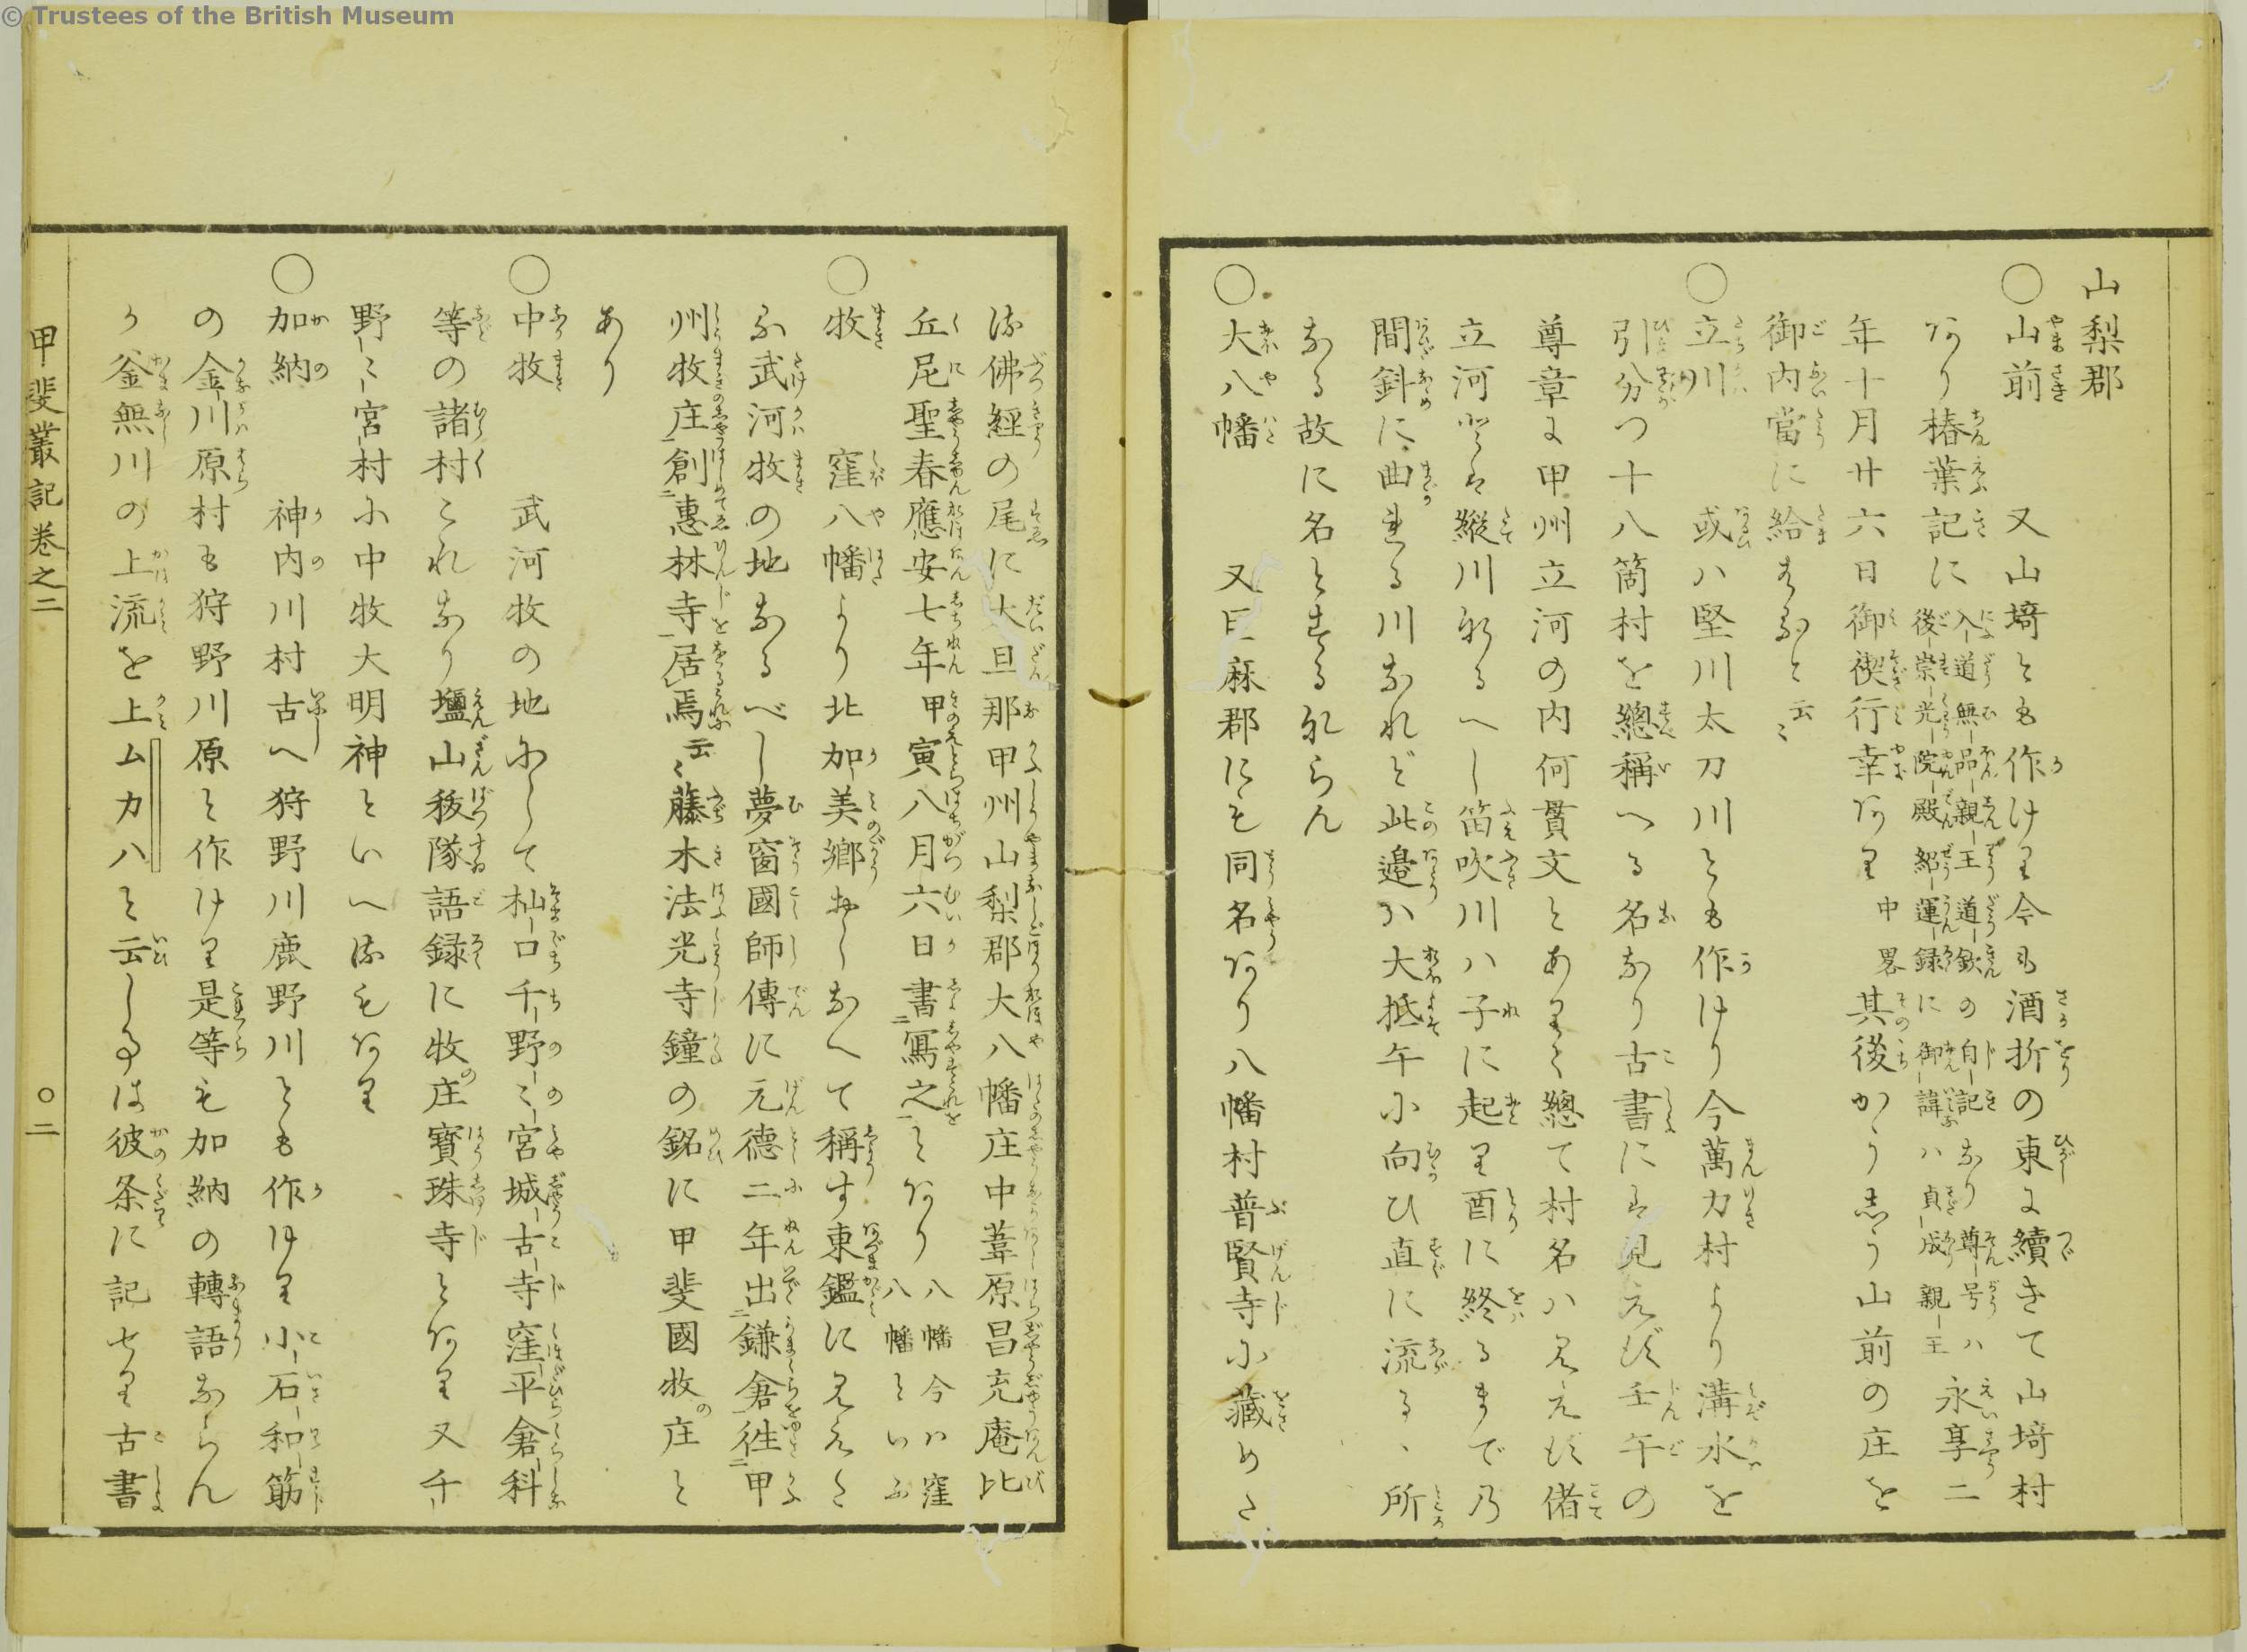 © Trustees of the British Museum
山梨郡
○山前　又山埼とも作けり今も酒折の東に續きて山埼村
あり椿葉記に入道無品親王道欽の自記なり尊号ハ永享二
後崇光院殿紹運録に御諱ハ貞成親王
年十月廿六日御禊行幸あり中畧其後かう志う山前の庄を
御内當に給するると云〻
○立川　或ハ堅川太刀川とも作けり今萬力村より溝水を
引分つ十八箇村を總稱へる名なり古書には見えず壬午の
尊章に甲州立河の内何貫文とありて總て村名ハ見えず偖
立河とは縱川なるへし笛吹川ハ子に起り酉に終るまで乃
間斜に曲れる川なれど此邉ハ大抵午に向ひ直に流るゝ所
なる故に名とするならん
○大八幡　又巨麻郡にも同名あり八幡村普賢寺に藏めた
る佛經の尾に大旦那甲州山梨郡大八幡庄中葦原昌充庵比
丘尼聖春應安七年甲寅八月六日書寫之とあり八幡今ハ窪
八幡といふ
○牧　窪八幡より北加美郷おしなへて稱す東鑑に見えた
る武河牧の地なるべし夢窗國師傳に元德二年出鎌倉徃甲
州牧庄創惠林寺居焉云〻藤木法光寺鐘の銘に甲斐國牧の庄と
あり
○中牧　武河牧の地にして杣口千野〻宮城古寺窪平倉科
等の諸村これなり塩山秡隊語録に牧の庄寶珠寺とあり又千
野〻宮村に中牧大明神といへるもあり
○加納　神内川村古へ狩野川鹿野川とも作けり小石和筋
の金川原村も狩野川原と作けり是等も加納の轉語ならん
か釜無川の上流を上ムカハと云し事は彼条に記せり古書
甲斐叢記巻之二　○二